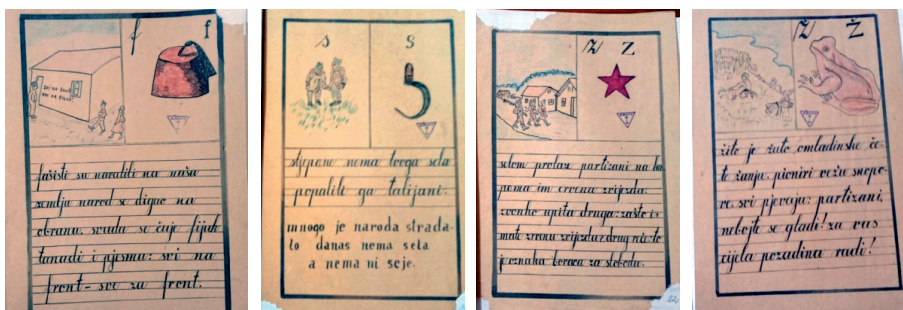 f f
fašisti su navalili na našu
zemlju narod se digao na
obranu. svuda se čuje fijuk
tanadi i pjesma: svi na
front - sve za front.
s s
stjepane nema tvoga sela
popalili ga talijani.
mnogo je naroda strada-
lo danas nema sela
a nema ni seje.
z z
selom prolaze partizani na ka
pama im crvena zvijezda.
zvonko upita druga: zašto i-
mate zvijezdu? drug to
je oznaka boraca za slobodu.
22
ž ž
žito je žuto omladinske če-
te žanju. pioniri vežu snopo-
ve. svi pjevaju: partizani,
nebojte se gladi! za vas
cijela pozadina radi!